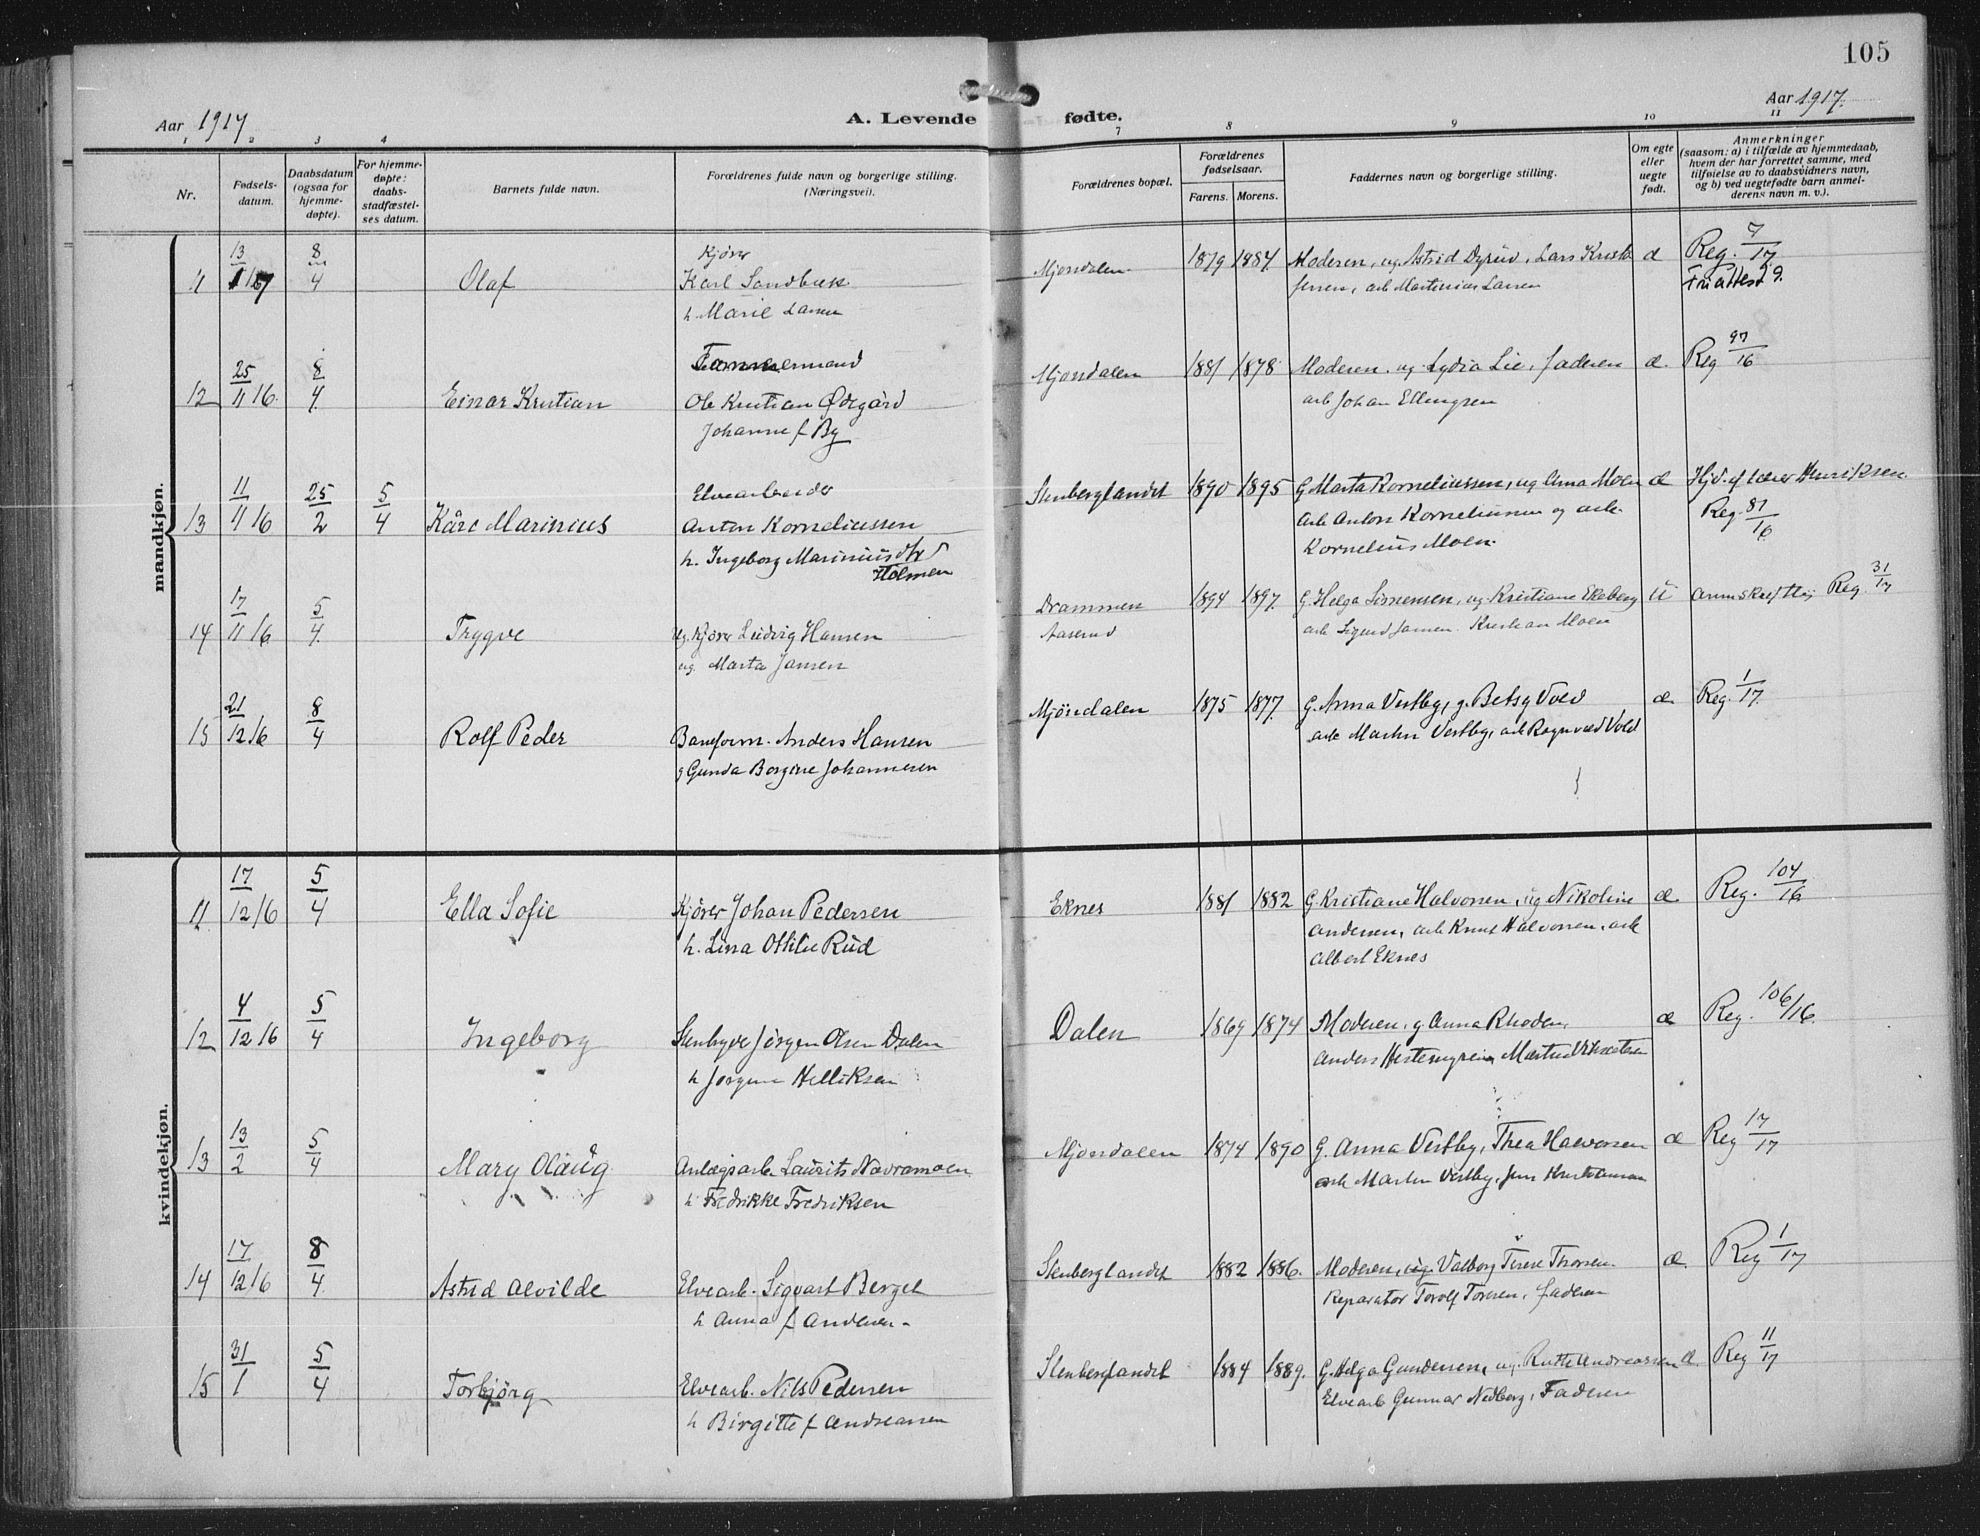 105
Aar 1917
A. Levende fødte.
Aar 1917.
1 2 3 4 7 8 9 10 11
Nr.
Fødsels-
datum.
Daabsdatum
(ogsaa for
hjemme-
døpte).
For hjemme-
døpte:
daabs-
stadfæstel-
ses datum.
Barnets fulde navn.
Forældrenes fulde navn og borgerlige stilling.
(Næringsvei).
Forældrenes bopæl.
Forældrenes
fødselsaar.
Farens. Morens.
Faddernes navn og borgerlige stilling.
Om egte
eller
uegte
født.
Anmerkninger
(saasom: a) i tilfælde av hjemmedaab,
hvem der har forrettet samme, med
tilføielse av to daabsvidners navn,
og b) ved uegtefødte barn anmel-
derens navn m. v.).
mandkjøn.
13 8 Kjører
11 1/17 4 Olaf Karl Sandbæk Mjøndalen 1879 1884 Moderen, ug. Astrid Dyrud, Lars Krist æ Reg. 7/17
h. Marie Larsen jensen, arb Martinius Larsen Friattest 29.
25 8 Tømmermand
12 11/16 4 Einar Kristian Ole Kristian Ødegård Mjøndalen 1881 1878 Moderen, ug Lydia Lie, faderen æ. Reg 97/16
Johanne f By arb Johan Ellingsen
11 25 5 Elvearbeider
13 11/16 2 4 Kåre Marinius Anton Korneliussen Stenberglandet 1890 1895 G Marta Korneliussen, ug Anna Moen æ Hjd. af lærer Henriksen.
h. Ingeborg Mariniusdtr Holmen arb Anton Korneliussen og arb Reg. 81/16
Kornelius Moen.
17 5
14 11/16 4 Trygve Ug. Kjører Ludvig Hansen Drammen 1894 1897. G. Helga Simensen, ug Kristiane Ekeberg U Reg. 31/17
ug. Marta Jansen Aaserud arb. Sigurd Jansen. Kristian Moen
21 8
15 12/16 4 Rolf Peder Baneform. Anders Hansen Mjöndalen 1875 1877. G. Anna Vestby, g. Betsy Vold æ. Reg. 1/17.
g Gunda Borgine Johannesen arb Martin Vestby, arb Ragnvald Vold
kvindekjøn.
17 5
11 12/16 4 Ella Sofie Kjører Johan Pedersen Eknes 1881 1882 G. Kristiane Halvorsen, ug Nikoline æ. Reg. 104/16
h. Lina Ottilie Rud Andersen, arb Knut Halvorsen, arb
Albert Eknes
4 5
12 12/16 4 Ingeborg Jørgen Olsen Dalen Dalen 1869 1874 Moderen, g. Anna Rhoden, æ Reg. 106/16.
h Jørgine Helliksen Anders
13 5
13 2 4 Mary Olaug Anlægsarb. Laurits Navramoen Mjøndalen 1874 1890 G. Anna Vestby, Thea Halvorsen æ Reg 17/17
h Fredrikke Fredriksen arb Martin Vestby, Jens
17 8
14 12/16 4 Astrid Alvilde Elvearb. Sigvart Berget Stenberglandet 1882 1886. Moderen, ug Valborg Thorsen æ. Reg 1/17
h Anna f Andersen Reparatør Torolf Torsen, faderen
31 5
15 1 4 Torbjörg Elvearb. Nils Pedersen Stenberglandet 1884 1889. G. Helga Gundersen, ug. Ruth Andreassen æ. Reg 11/17
h Birgitte f Andreassen Elvearb Gunnar Nedberg, Faderen